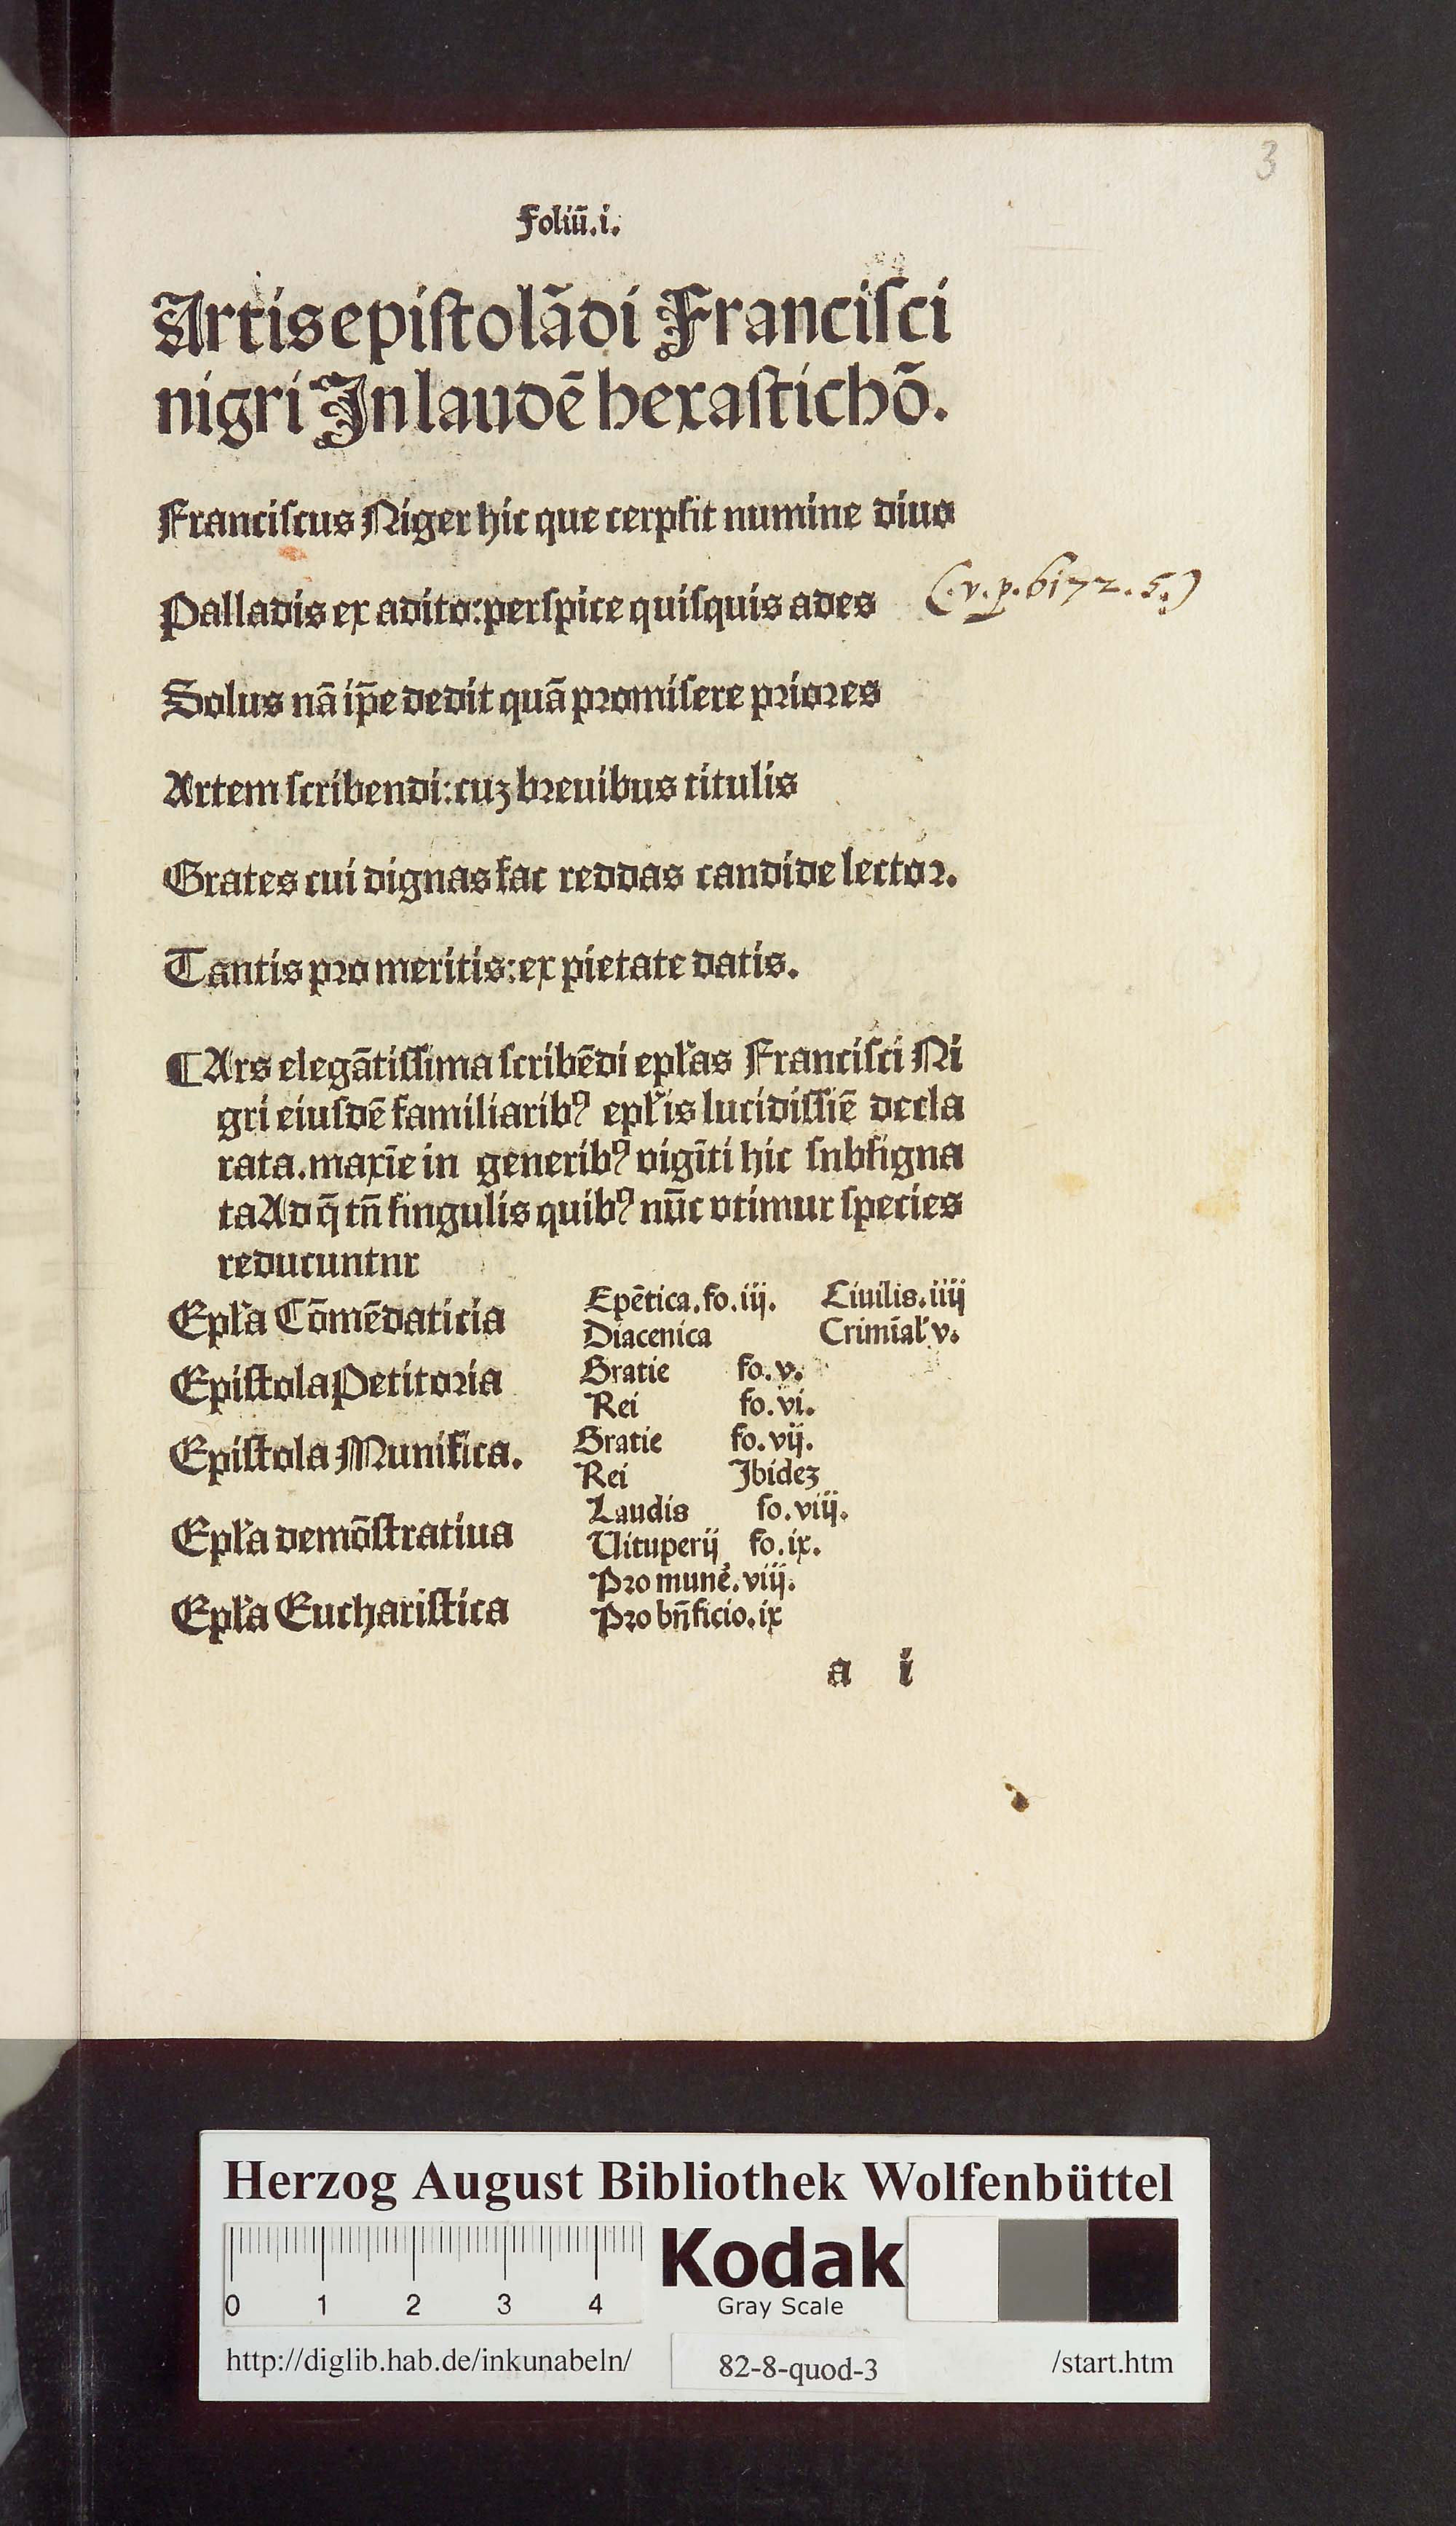 3
Foliū.i.
Artis epistolādi Francisci
nigri In laudē hexastichō.
Franciscus Niger hic que cerpsit numine diuo
Palladis ex adito:perspice quisquis ades
(.v.p.6172.5.)
Solus nā ip̄e dedit quā promisere priores
Artem scribendi:cuz breuibus titulis
Grates cui dignas fac reddas candide lector.
Tantis pro meritis:ex pietate datis.
¶Ars elegātissima scribēdi epl̄as Francisci Ni
gri eiusdē familiaribꝰ epl̄is lucidissiē decla
rata.maxīe in generibꝰ vigīti hic snbsigna
ta Ad q̄ tn̄ singulis quibꝰ nūc vtimur species
reducuntnr
Epl̄a Cōmēdaticia Epētica.fo.iij. Ciuilis.iiij
Diacenica Crimīal̄ v.
Epistola Petitoria Gratie fo.v.
Rei fo.vi.
Epistola Munifica. Gratie fo.vij.
Rei Ibidez
Epl̄a demōstratiua Laudis fo.viij.
Vituperij fo.ix.
Epl̄a Eucharistica Pro mune͛.viij.
Pro bn̄ficio.ix
a i
Herzog August Bibliothek Wolfenbüttel
0 1 2 3 4
Kodak
Gray Scale
http://diglib.hab.de/inkunabeln/ 82-8-quod-3 /start.htm